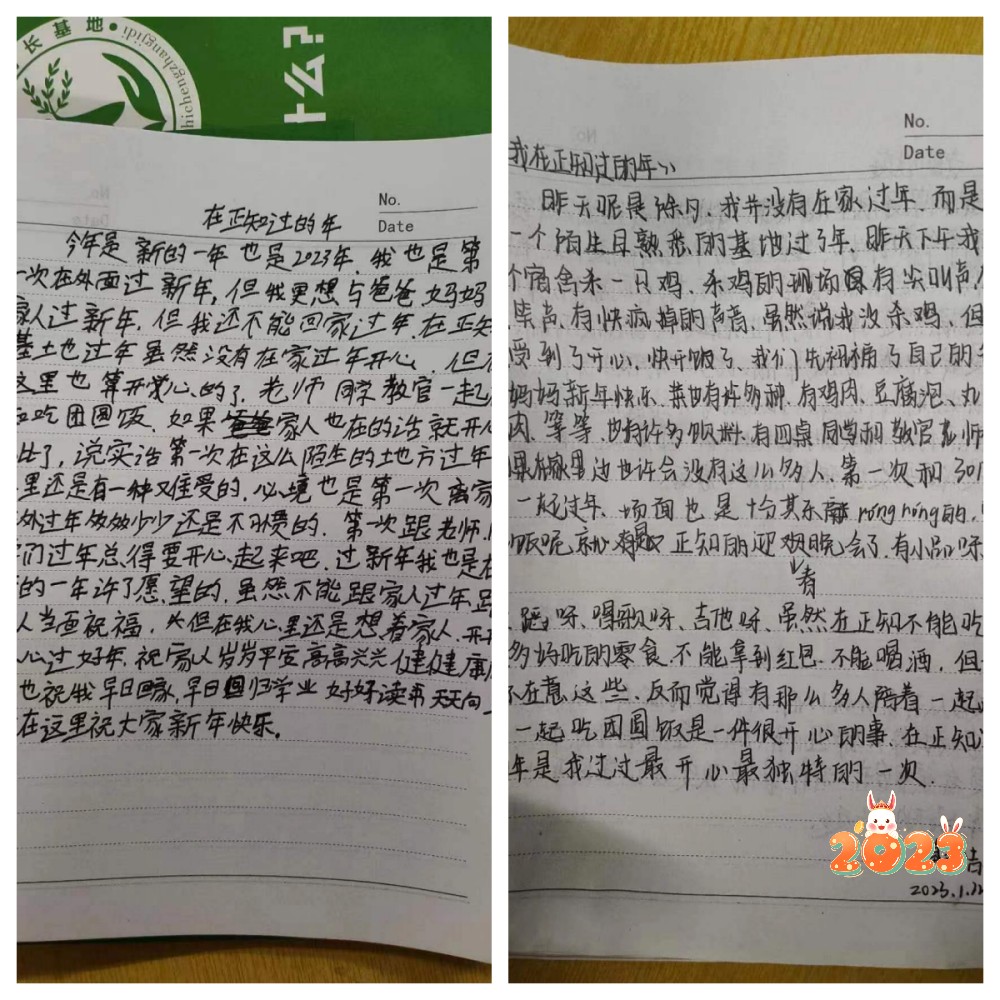 长基地
hichengzhangjidi
什么?
No.
Date
在正知过的年
今年是新的一年也是2023年,我也是第
一次在外面过新年,但我更想与爸爸妈妈
家人过新年,但我还不能回家过年,在正知
基土也过年虽然没有在家过年开心,但在
这里也算开觉心的了,老师同学教官一起
吃团圆饭,如果家人也在的话就开心
比了,说实话第一次在这么陌生的地方过年
里还是有一种难受的心境也是第一次离家
外过年多多少少还是不习惯的,第一次跟老师
们过年总得要开心起来吧,过新年我也是在
的一年许了愿望的,虽然不能跟家人过年
人当面祝福,但在我心里还是想着家人,开
心过好年,祝家人岁岁平安高高兴兴健健康
也祝我早日回家,早日回归学业好好读书天天向
在这里祝大家新年快乐。
No.
Date
我在正知过的年》
昨天呢是除夕,我并没有在家过年,而是
一个陌生且熟悉的基地过了年,昨天下午我
个宿舍杀一只鸡,杀鸡的现场有尖叫声
笑声,有快疯掉的声音,虽然说我没杀鸡,但
受到了开心,快开饭了,我们先祝福了自己的
妈妈新年快乐,菜也有许多种,有鸡肉、豆腐泡、丸
肉、等等,也有许多饮料,有四桌同学和教官老师
果在家里边也许会没有这么多人,第一次和30
一起过年,场面也是十份其乐 róng róng的,
饭呢就是正知的迎晚会了,有小品呀
春
蹈呀、唱歌呀、吉他呀、虽然在正知不能吃
多好吃的零食,不能拿到红包,不能喝酒,但
不在意这些,反而觉得有那么多人陪着一起
一起吃团圆饭是一件很开心的事,在正知
年是我过过最开心最独特的一次.
2023
吉
2023.1.22